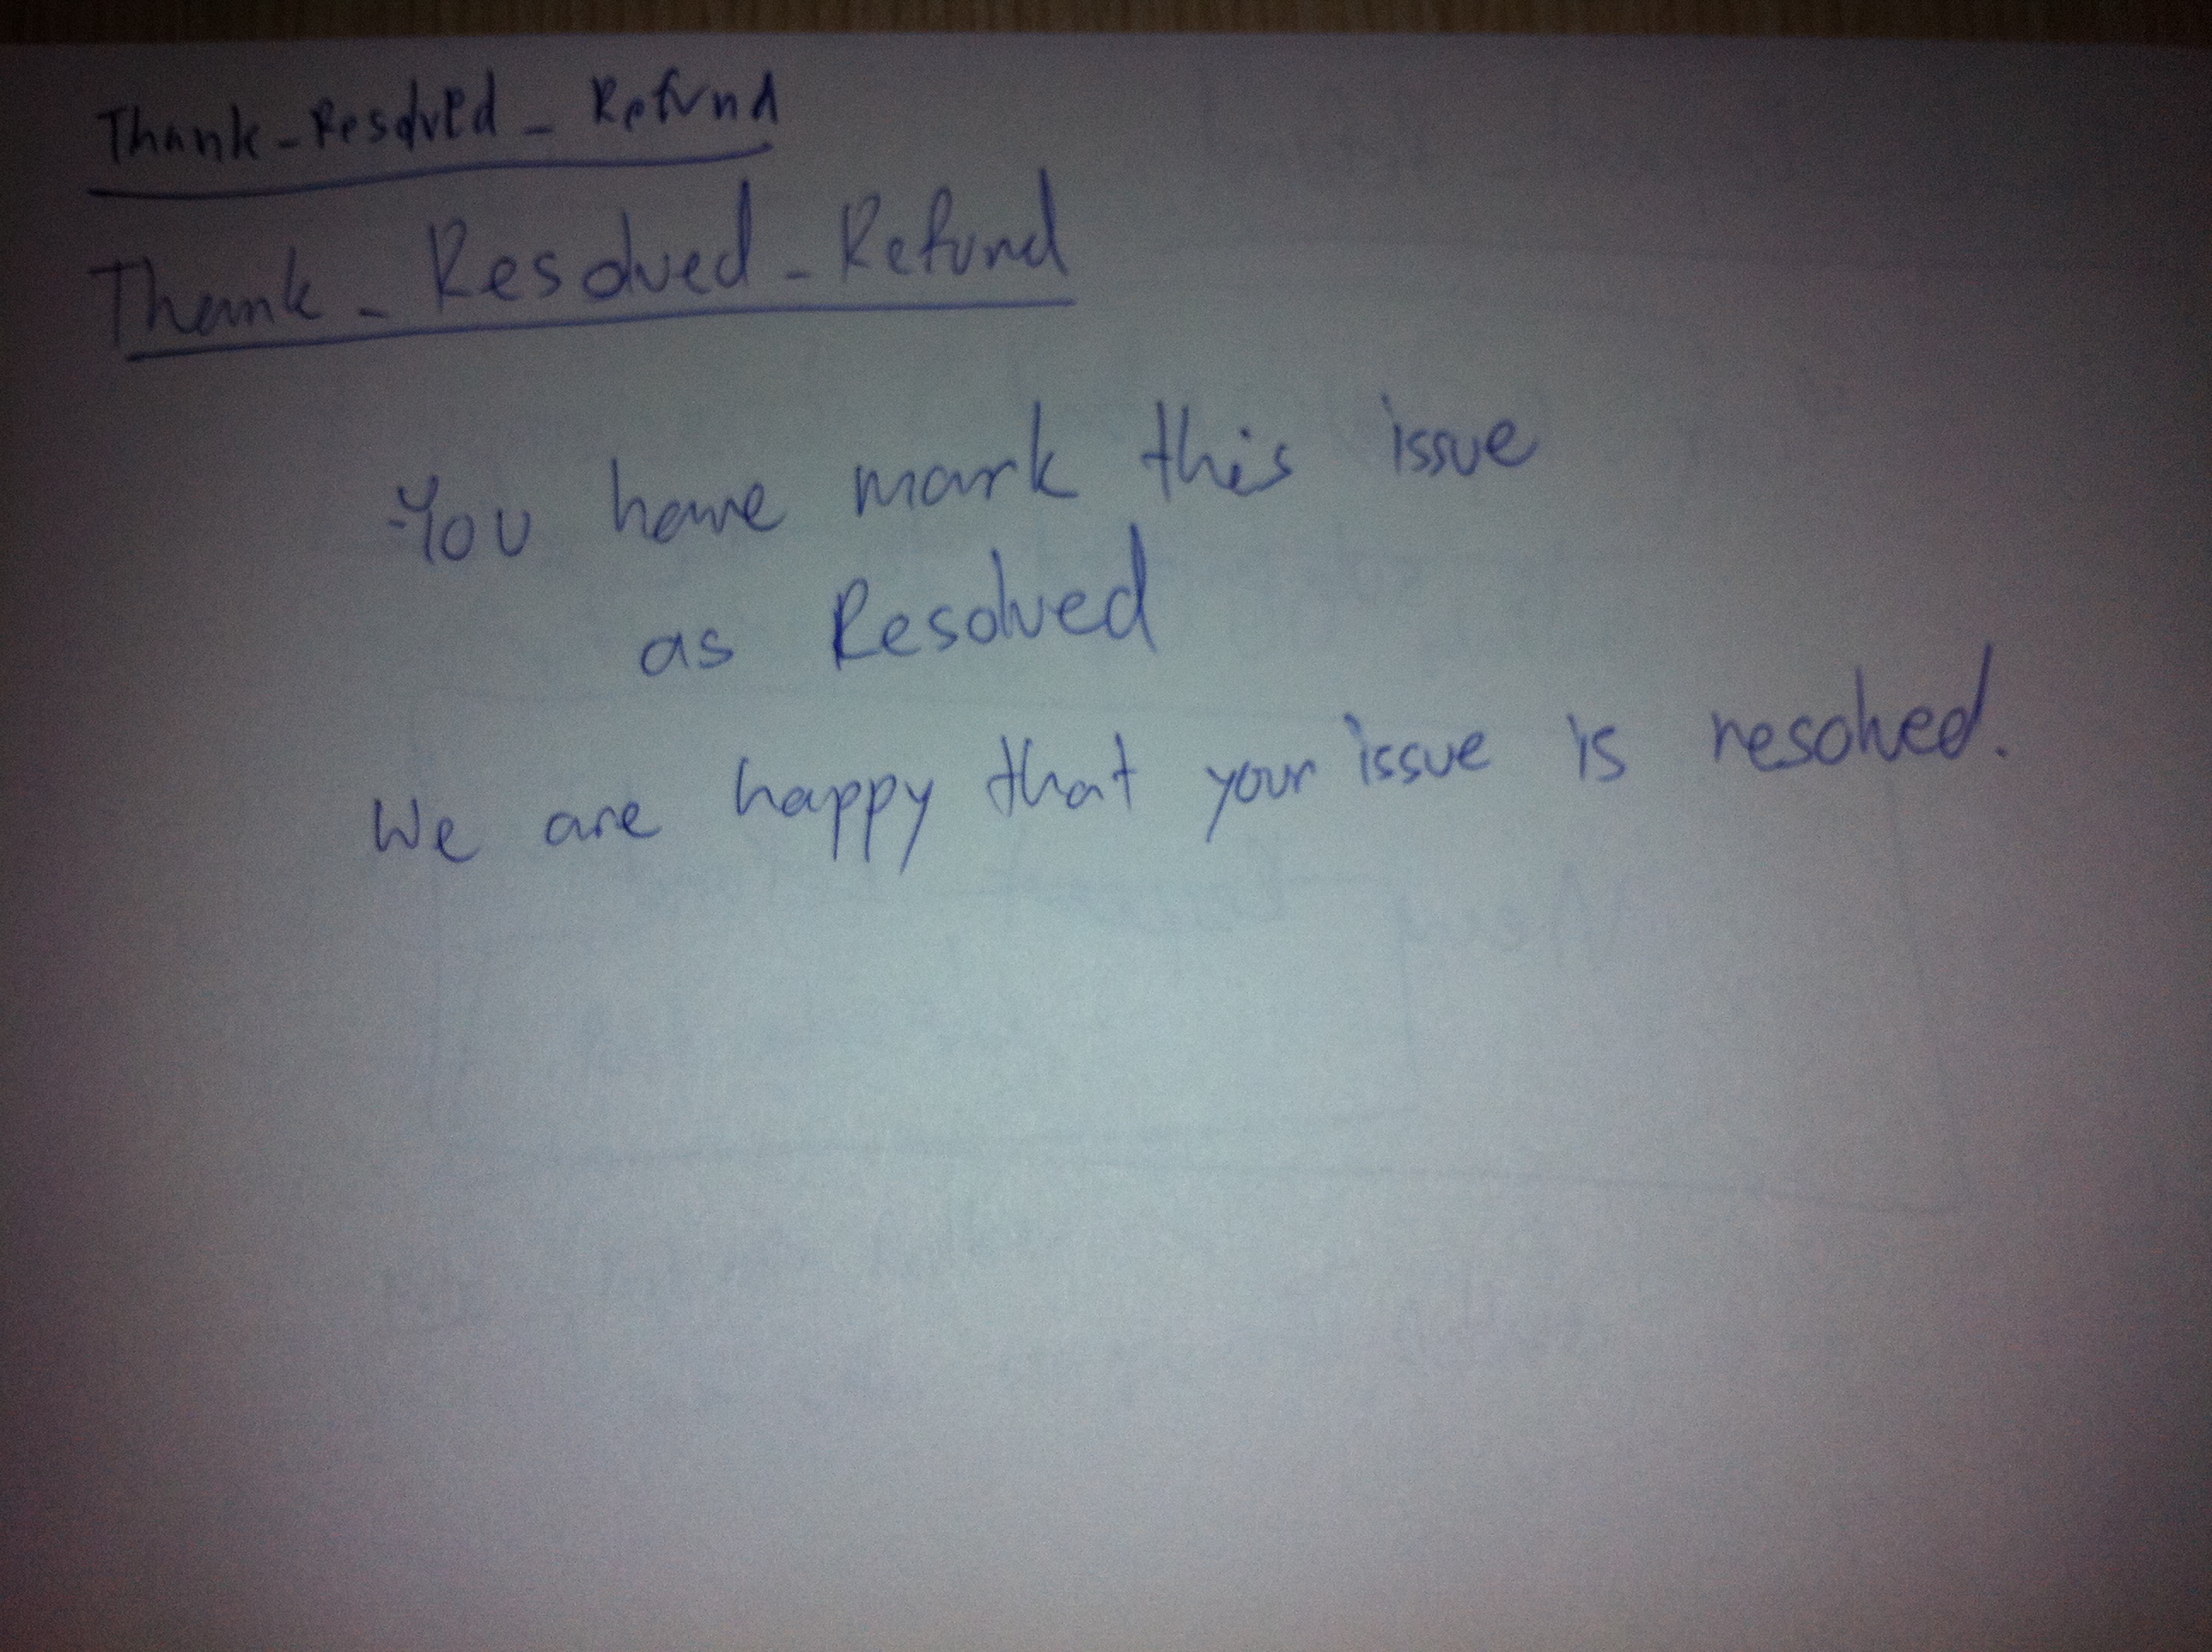 Thank-Resolved - Refund
Thank - Resolved - Refund
You have mark this issue
as Resolved
We are happy that your issue is resolved.